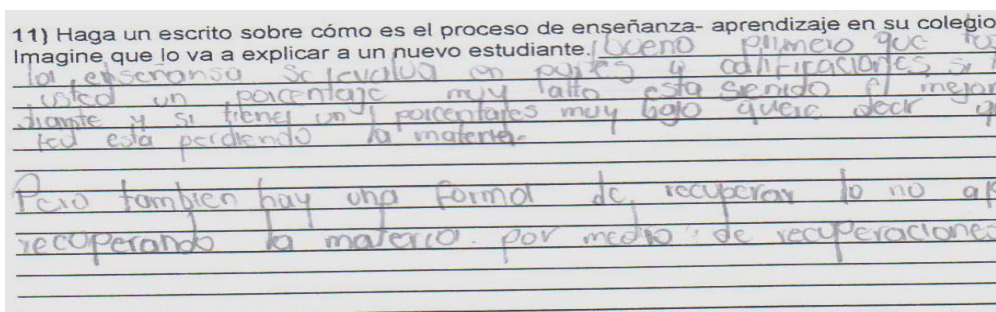 11) Haga un escrito sobre cómo es el proceso de enseñanza- aprendizaje en su colegio
Imagine que lo va a explicar a un nuevo estudiante. bueno primero que
la enseñansa se evalua en y calificaciones si
usted un porcentaje muy alto esta sienido el mejor
diante y si tienes un porcentajes muy bajo quere decir q
ted esta perdiendo la materia.
Pero tambien hay una forma de recuperar lo no
recuperando la materia por medio de recuperaciones